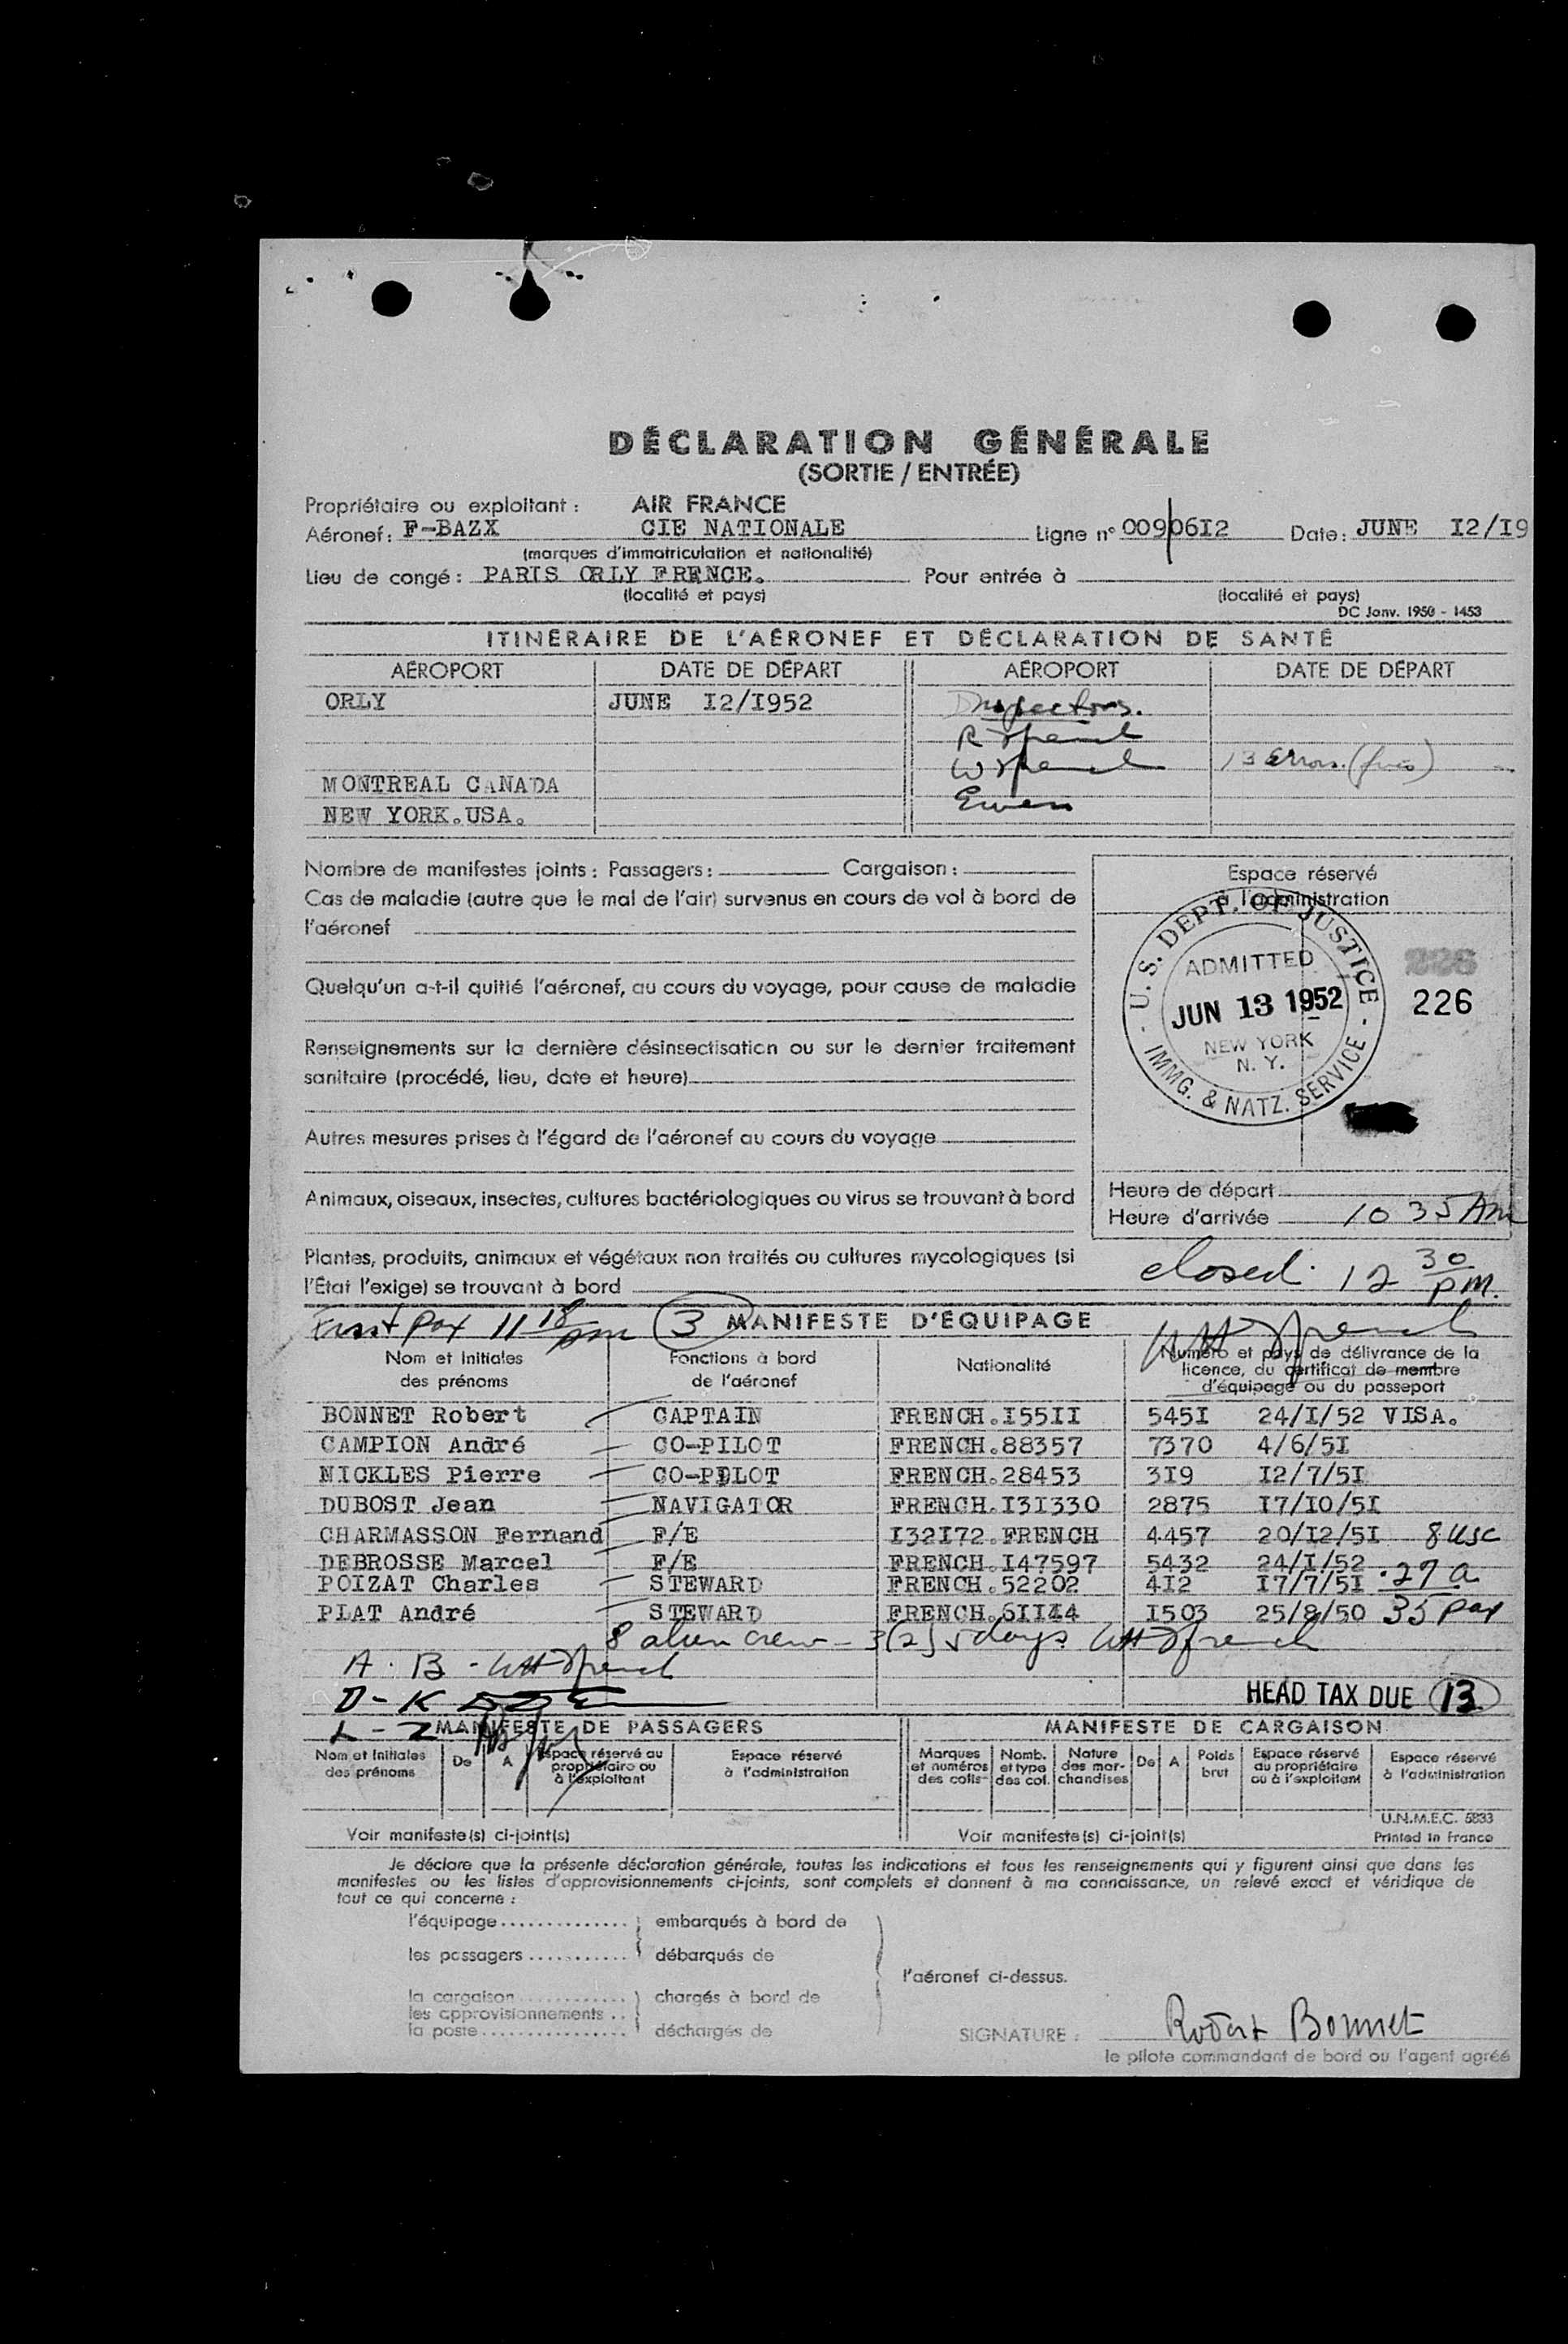 DÉCLARATION GÉNÉRALE
(SORTIE / ENTRÉE)
Propriétaire ou exploitant : AIR FRANCE
Aéronef : F-BAZX CIE NATIONALE Ligne n° 0090612 Date : JUNE I2/I9
(marques d'immatriculation et nationalité)
Lieu de congé : PARIS ORLY FRENCE. Pour entrée à
(localité et pays) (localité et pays)
DC Janv. 1950 - 1453
ITINÉRAIRE DE L'AÉRONEF ET DÉCLARATION DE SANTÉ
AÉROPORT DATE DE DÉPART AÉROPORT DATE DE DÉPART
ORLY JUNE I2/I952 Inspectors.
R
W
MONTREAL CANADA Ewen
NEW YORK.USA.
Nombre de manifestes joints : Passagers : Cargaison :
Cas de maladie (autre que le mal de l'air) survenus en cours de vol à bord de
l'aéronef
Quelqu'un a-t-il quitté l'aéronef, au cours du voyage, pour cause de maladie
Renseignements sur la dernière désinsectisation ou sur le dernier traitement
sanitaire (procédé, lieu, date et heure)
Autres mesures prises à l'égard de l'aéronef au cours du voyage
Animaux, oiseaux, insectes, cultures bactériologiques ou virus se trouvant à bord
Plantes, produits, animaux et végétaux non traités ou cultures mycologiques (si
l'État l'exige) se trouvant à bord
Espace réservé
à l'administration
U. S. DEPT. OF JUSTICE
ADMITTED
JUN 13 1952
NEW YORK
N. Y.
IMMG. & NATZ. SERVICE
226
226
Heure de départ
Heure d'arrivée 10 35 AM
closed 12 30 PM.
First Pax 11 18 pm (3) MANIFESTE D'ÉQUIPAGE
Nom et Initiales des prénoms Fonctions à bord de l'aéronef Nationalité Numéro et pays de délivrance de la licence, du certificat de membre d'équipage ou du passeport
BONNET Robert CAPTAIN FRENCH.I55II 545I 24/I/52 VISA.
CAMPION André CO-PILOT FRENCH.88357 7370 4/6/5I
NICKLES Pierre CO-PILOT FRENCH.28453 3I9 I2/7/5I
DUBOST Jean NAVIGATOR FRENCH.I3I330 2875 I7/I0/5I
CHARMASSON Fernand F/E I32I72.FRENCH 4457 20/I2/5I 8 USC
DEBROSSE Marcel F/E FRENCH.I47597 5432 24/I/52
POIZAT Charles STEWARD FRENCH.52202 4I2 I7/7/5I 27 a
PLAT André STEWARD FRENCH.6II44 I503 25/8/50 35 pax
8 alien crew - 3(2)5 days
A - B -
D - K
L - Z
HEAD TAX DUE 13
MANIFESTE DE PASSAGERS MANIFESTE DE CARGAISON
Nom et Initiales des prénoms De A Espace réservé au propriétaire ou à l'exploitant Espace réservé à l'administration
Marques et numéros des colis Nomb. et type des col. Nature des marchandises De A Poids brut Espace réservé au propriétaire ou à l'exploitant Espace réservé à l'administration
U.N.M.E.C. 5833
Voir manifeste(s) ci-joint(s) Voir manifeste(s) ci-joint(s) Printed in France
Je déclare que la présente déclaration générale, toutes les indications et tous les renseignements qui y figurent ainsi que dans les
manifestes ou les listes d'approvisionnements ci-joints, sont complets et donnent à ma connaissance, un relevé exact et véridique de
tout ce qui concerne :
l'équipage embarqués à bord de
les passagers débarqués de
l'aéronef ci-dessus.
la cargaison chargés à bord de
les approvisionnements
la poste déchargés de
SIGNATURE : Robert Bonnet
le pilote commandant de bord ou l'agent agréé